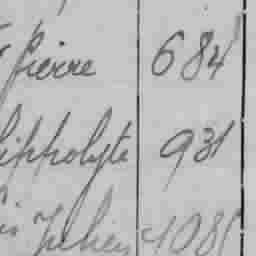 Pierre 684
Hippolyte 931
Julien 108